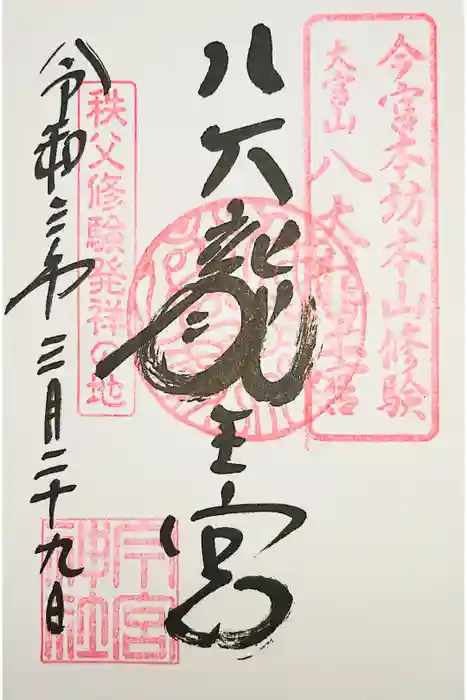 今宮本坊本山修験
大宮山八大龍王宮
八大龍王宮
秩父修験発祥の地
令和三年三月二十九日
今宮
神社